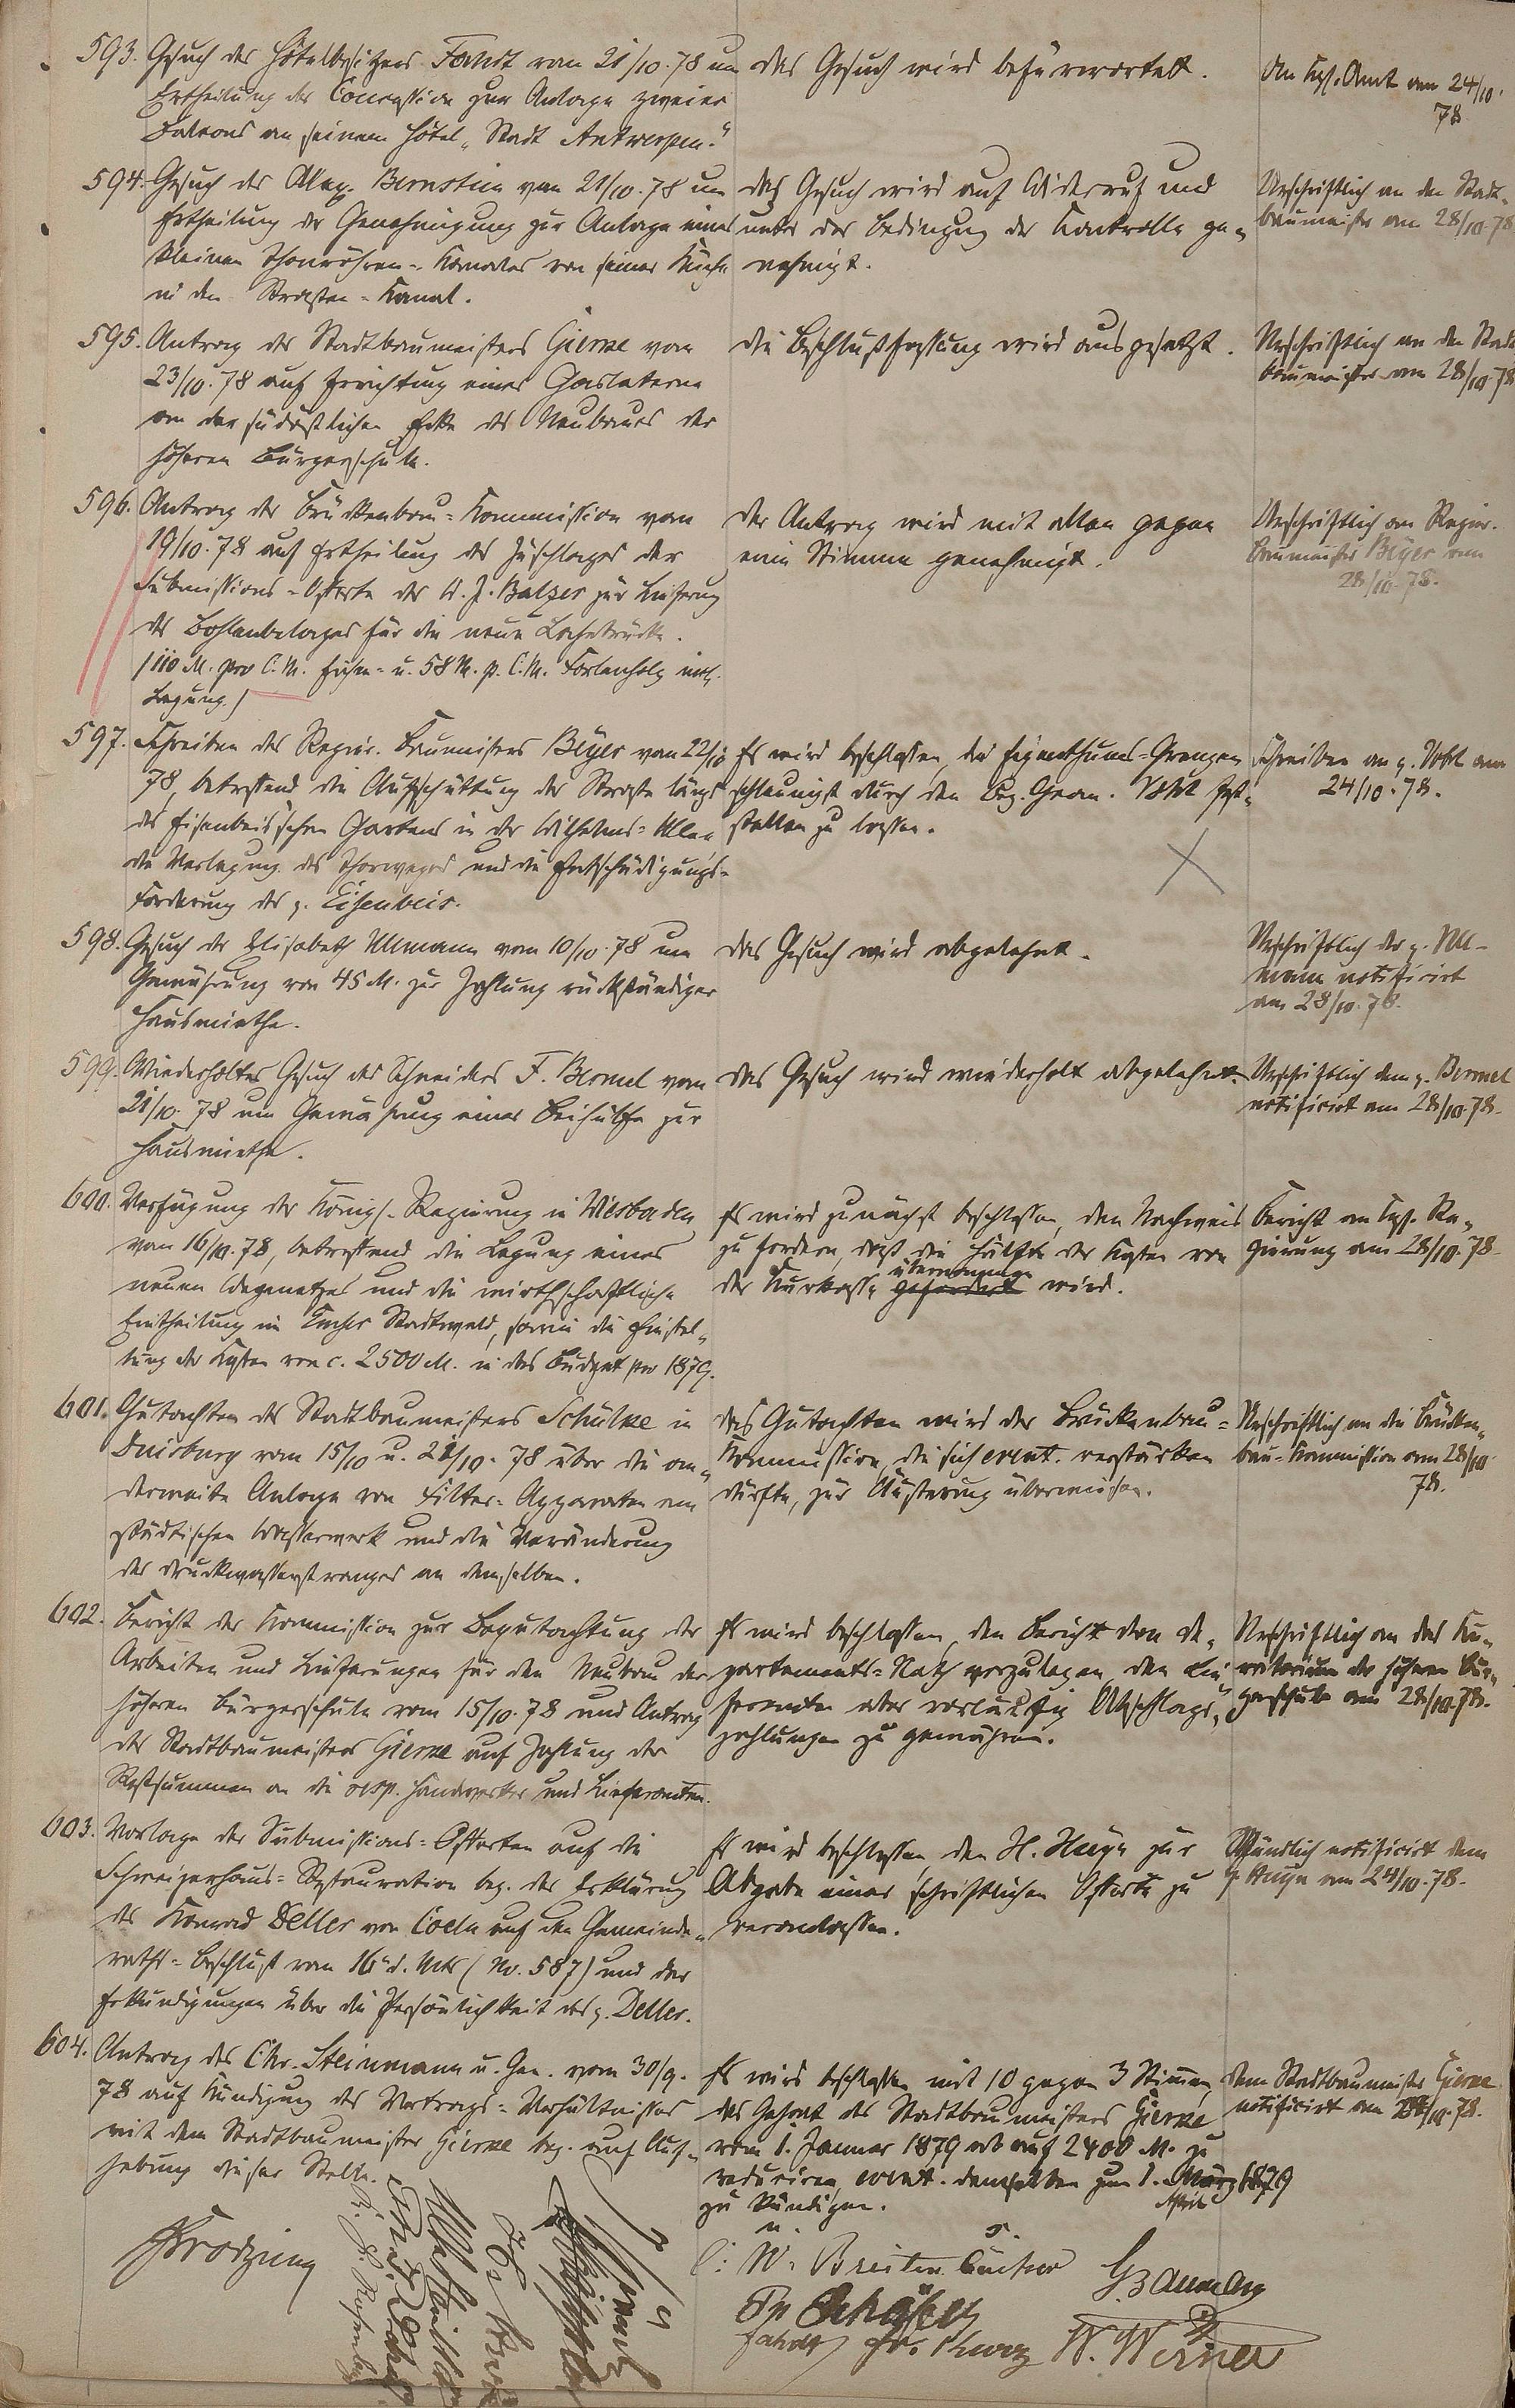 593. Gesuch des Hôtelbesitzers Fahdt vom 21/10.78 um
Ertheilung der Concession zur Anlage zweier
Balkons an seinem Hôtel "Stadt Antwerpen."
Das Gesuch wird befürwortet.
An Kgl. Amt am 24/10.
78
594. Gesuch des Alex. Bernstein vom 21/10.78 um
Ertheilung der Genehmigung zur Anlage eines
kleinen Thonröhren-Kanales von seiner Küche
in den Straßen-Kanal.
Das Gesuch wird auf Widerruf und
unter der Bedingung der Kontrolle ge-
nehmigt.
Urschriftlich an den Stadt-
baumeister am 28/10.78
595. Antrag des Stadtbaumeisters Gierke vom
23/10.78 auf Errichtung einer Gaslaterne
an der südöstlichen Ecke des Neubaues der
höheren Bürgerschule.
Die Beschlußfassung wird ausgesetzt.
Urschriftlich an den Stadt
baumeister am 28/10.78
596. Antrag der Brückenbau-Kommission vom
19/10.78 auf Ertheilung des Zuschlages der
Submissions-Offerte des W. J. Balzer zur Lieferung
des Bohlenbelages für die neue Lahnbrücke.
(110 M. pro C.M. Eichen- u. 58 M. p. C.M. Forlenholz incl.
Legung.)
Der Antrag wird mit allen gegen
eine Stimme genehmigt.
Urschriftlich an Regier.
Baumeister Beyer am
28/10.78.
597. Schreiben des Regier. Baumeisters Beyer vom 22/10
78, betreffend die Aufschüttung der Straße längs
des Eisenbeis'schen Gartens in der Wilhelms-Allee
die Verlegung des Thorweges und die Entschädigungs-
Forderung des H. Eisenbeis.
Es wird beschlossen, die Eigenthums-Grenzen
schleunigst durch den Bez. Geom. Vohl fest-
stellen zu lassen.
Schreiben an H. Vohl am
24/10.78.
598. Gesuch der Elisabeth Ullmann vom 10/10.78 um
Gewährung von 45 M. zur Zahlung rückständiger
Hausmiethe.
Das Gesuch wird abgelehnt.
Urschriftlich der g. Ull-
mann notificirt
am 28/10.78.
599. Wiederholtes Gesuch des Schneiders F. Bermel vom
21/10.78 um Gewährung einer Beihülfe zur
Hausmiethe.
Das Gesuch wird wiederholt abgelehnt.
Urschriftlich dem g. Bermel
notificirt am 28/10.78.
600. Verfügung der Königl. Regierung in Wiesbaden
vom 16/10.78, betreffend die Legung eines
neuen Wegenetzes und die wirthschaftliche
Eintheilung im Emser Stadtwald, sowie die Einstel-
lung der Kosten von c. 2500 M. in das Budget pro 1879.
Es wird zunächst beschlossen, den Nachweis
zu fordern, daß die Hälfte der Kosten von
der Kurkasse gefordert übernommen wird.
Bericht an Kgl. Re-
gierung am 28/10.78.
601. Gutachten des Stadtbaumeisters Schülke in
Duisburg vom 15/10 u. 21/10.78 über die an-
derweite Anlage von Filter-Apparaten am
städtischen Wasserwerk und die Veränderung
des Druckwasserstranges an demselben.
Das Gutachten wird der Brückenbau-
Kommission, die sich event. verstärken
dürfte, zur Äußerung überwiesen.
Urschriftlich an die Brücken-
bau-Kommission am 28/10
78.
602. Bericht der Kommission zur Begutachtung der
Arbeiten und Lieferungen für den Neubau der
höheren Bürgerschule vom 15/10.78 und Antrag
des Stadtbaumeisters Gierke auf Zahlung der
Restsummen an die resp. Handwerker und Lieferanten.
Es wird beschlossen, den Bericht dem De-
partements-Rath vorzulegen, den Lie-
feranten aber vorläufig Abschlags-
zahlungen zu gewähren.
Urschriftlich an das Ku-
ratorium der höheren Bür-
gerschule am 28/10.78.
603. Vorlage der Submissions-Offerten auf die
Schweizerhaus-Restauration bez. der Erklärung
des Konrad Deller von Coeln auf den Gemeinde-
raths-Beschluß vom 16. d. Mts (No. 587) und der
Erkundigungen über die Persönlichkeit des g. Deller.
Es wird beschlossen, den H. Huyn zur
Abgabe einer schriftlichen Offerte zu
veranlassen.
Mündlich notificirt dem
H. Huyn am 24/10.78.
604. Antrag des Chr. Steinmann u. Gen. vom 30/9.
78 auf Kündigung des Vertrags-Verhältnisses
mit dem Stadtbaumeister Gierke bez. auf Auf-
hebung dieser Stelle.
Es wird beschlossen mit 10 gegen 3 Stimmen,
das Gehalt des Stadtbaumeisters Gierke
vom 1. Januar 1879 ab auf 2400 M. zu
reduciren, event. demselben zum 1. März 1879
April
zu kündigen.
Dem Stadtbaumeister Gierke
notificirt am 28/10.78.
v. g. u.
W. Breitenbücher
G. Baumann
Ph Schäfer
Fahdt
W. Werner